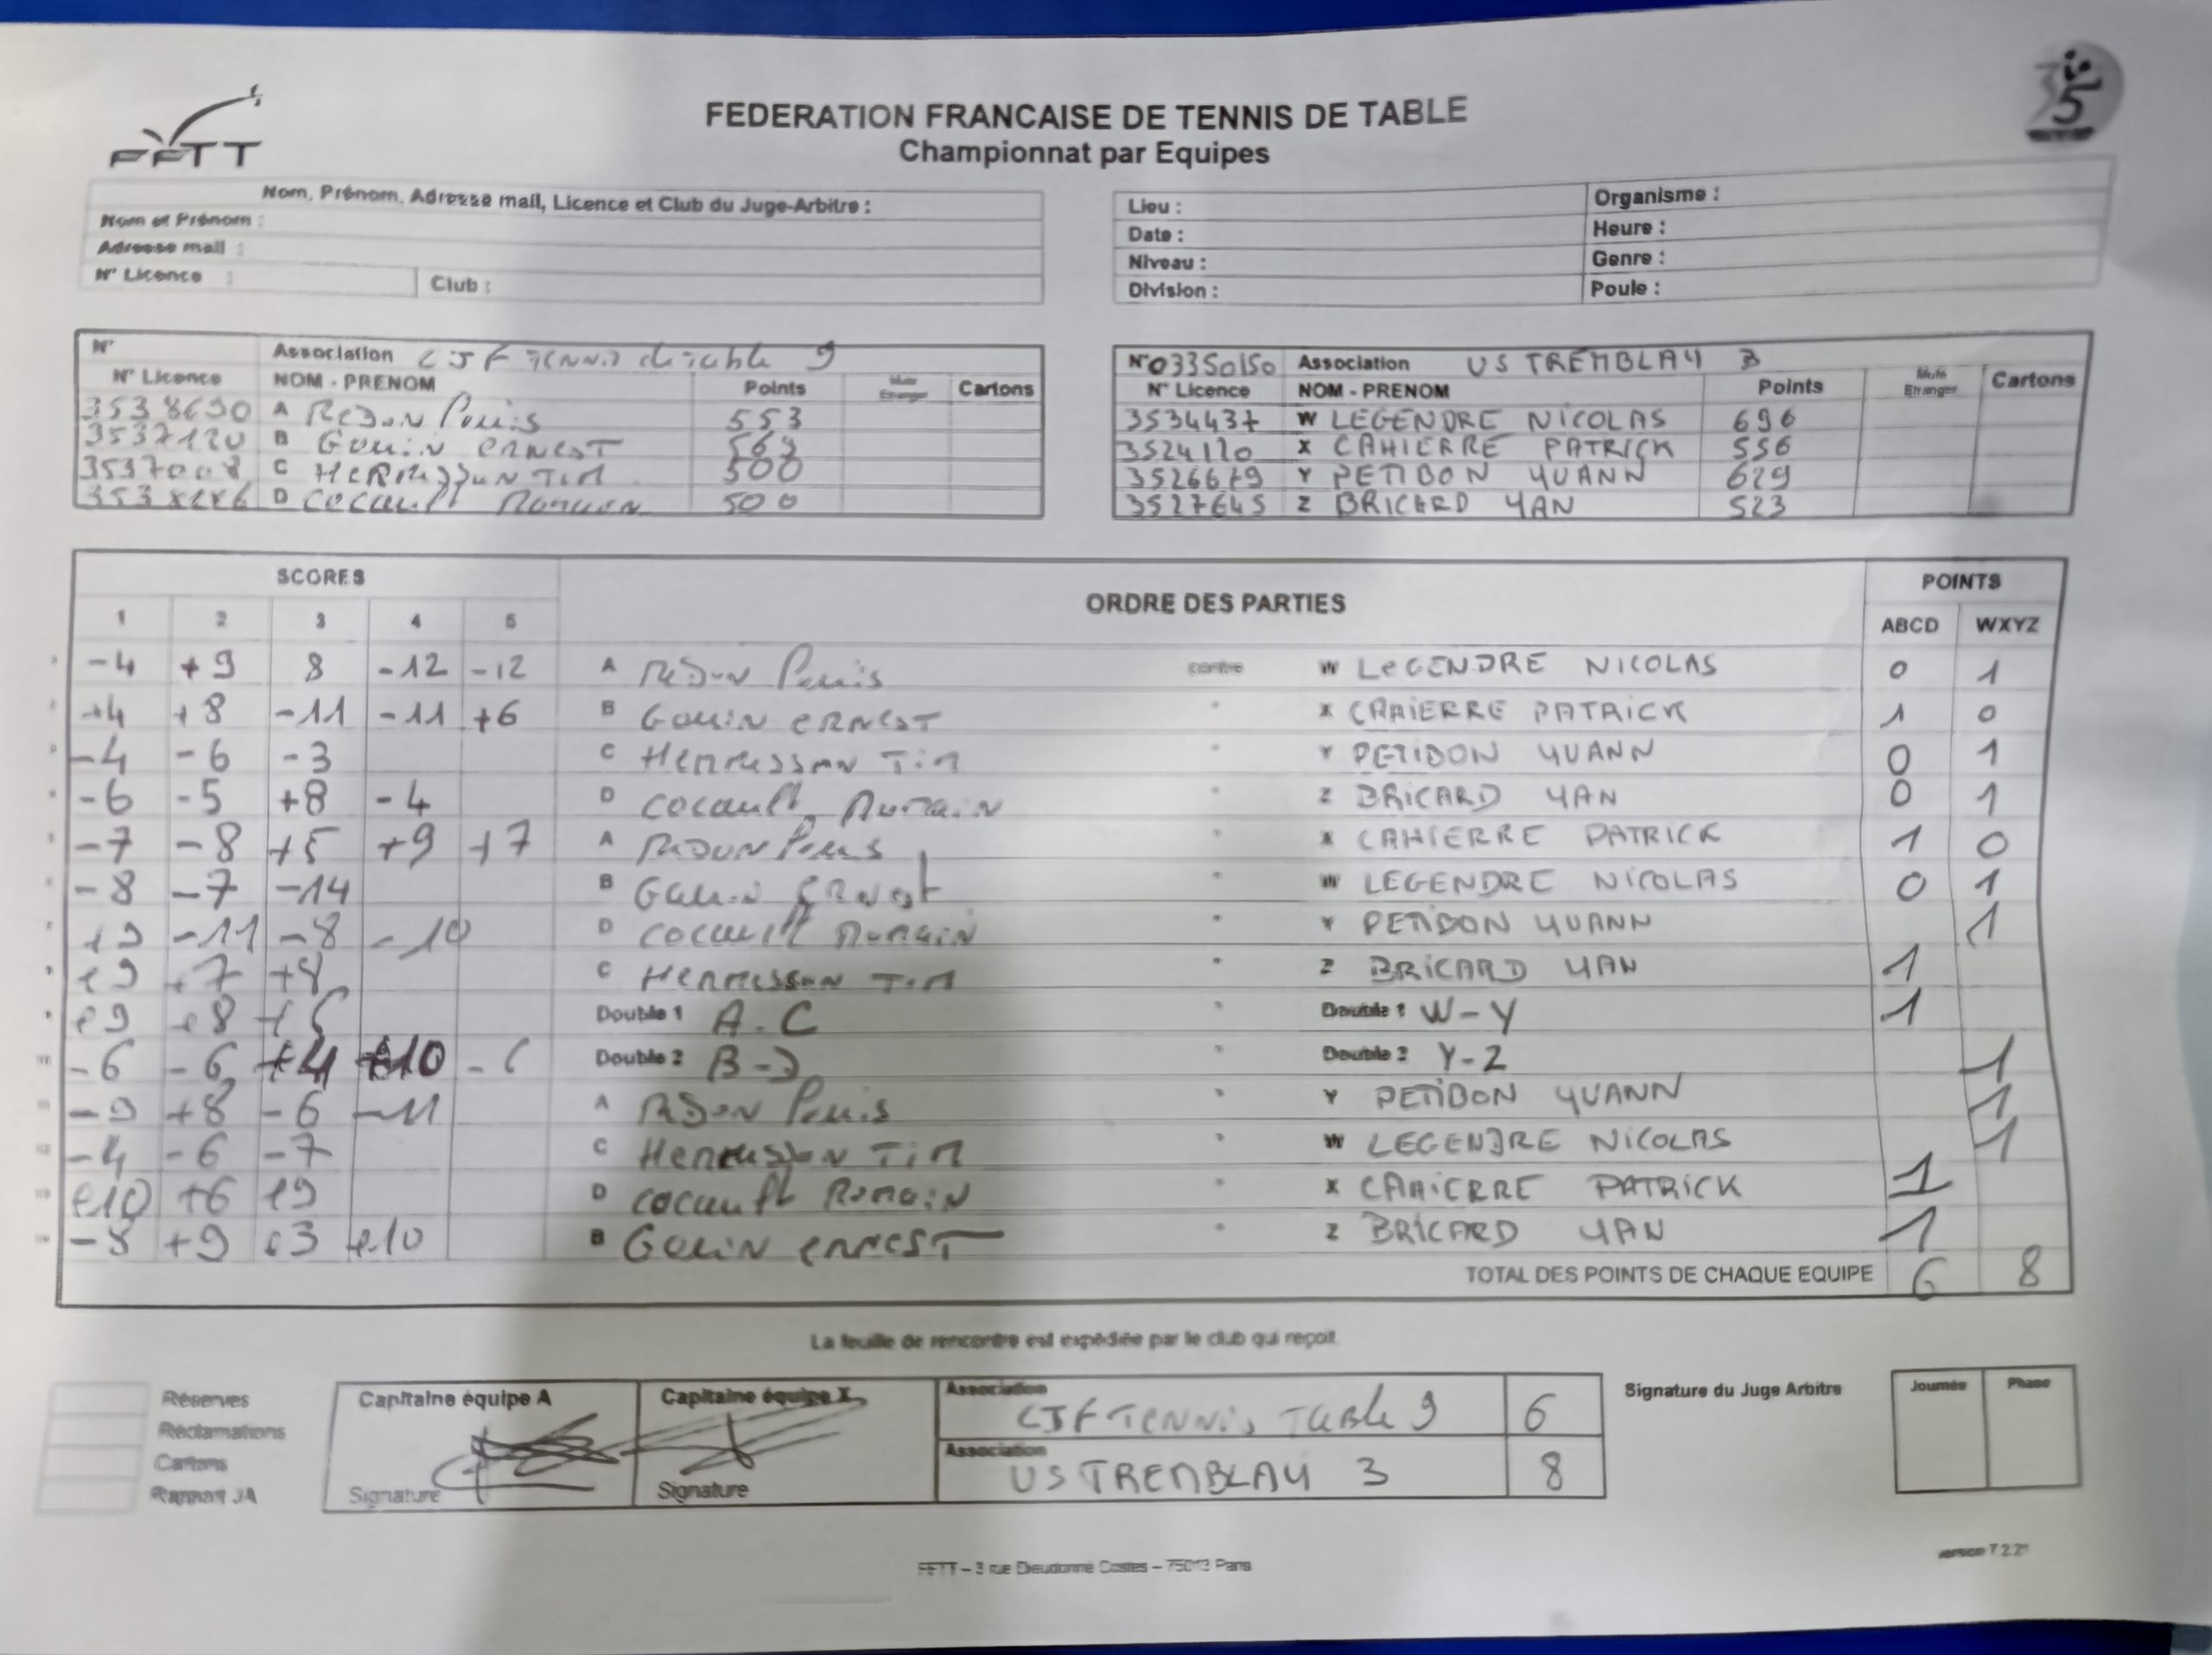 FFTT
FEDERATION FRANCAISE DE TENNIS DE TABLE
Championnat par Equipes
Nom, Prénom, Adresse mail, Licence et Club du Juge-Arbitre :
Nom et Prénom :
Adresse mail :
N° Licence : Club :
Lieu : Organisme :
Date : Heure :
Niveau : Genre :
Division : Poule :
N° Association CJF Tennis de table 9
N° Licence NOM - PRENOM Points Muté Etranger Cartons
3538690 A REDON 553
3537120 B Gouin ERNEST 569
C HERMESSON TIM 500
D COCAULT ROMAIN 500
N° 03350150 Association US TREMBLAY 3
N° Licence NOM - PRENOM Points Muté Etranger Cartons
3534437 W LEGENDRE NICOLAS 696
3524120 X CAHIERRE PATRICK 556
3526679 Y PETIBON YUANN 629
3527645 Z BRICARD YAN 523
SCORES ORDRE DES PARTIES POINTS
1 2 3 4 5 ABCD WXYZ
-4 +9 8 -12 -12 A REDON contre W LEGENDRE NICOLAS 0 1
+4 +8 -11 -11 +6 B GOUIN ERNEST " X CAHIERRE PATRICK 1 0
-4 -6 -3 C HERMESSON TIM " Y PETIBON YUANN 0 1
-6 -5 +8 -4 D COCAULT ROMAIN " Z BRICARD YAN 0 1
-7 -8 +5 +9 +7 A REDON " X CAHIERRE PATRICK 1 0
-8 -7 -14 B GOUIN ERNEST " W LEGENDRE NICOLAS 0 1
+9 -11 -8 -10 D COCAULT ROMAIN " Y PETIBON YUANN 1
+9 +7 +8 C HERMESSON TIM " Z BRICARD YAN 1
+9 +8 +5 Double 1 A-C " Double 1 W-Y 1
-6 -6 +4 +10 -6 Double 2 B-D " Double 2 Y-Z 1
-9 +8 -6 -11 A REDON " Y PETIBON YUANN 1
-4 -6 -7 C HERMESSON TIM " W LEGENDRE NICOLAS 1
+10 +6 +9 D COCAULT ROMAIN " X CAHIERRE PATRICK 1
-8 +9 +3 +10 B GOUIN ERNEST " Z BRICARD YAN 1
TOTAL DES POINTS DE CHAQUE EQUIPE 6 8
La feuille de rencontre est expédiée par le club qui reçoit.
Réserves
Réclamations
Cartons
Rapport JA
Capitaine équipe A
Signature
Capitaine équipe X
Signature
Association
CJF TENNIS TABLE 9 6
Association
US TREMBLAY 3 8
Signature du Juge Arbitre
Journée Phase
FFTT – 3 rue Dieudonné Costes – 75013 Paris
version 7.2.21